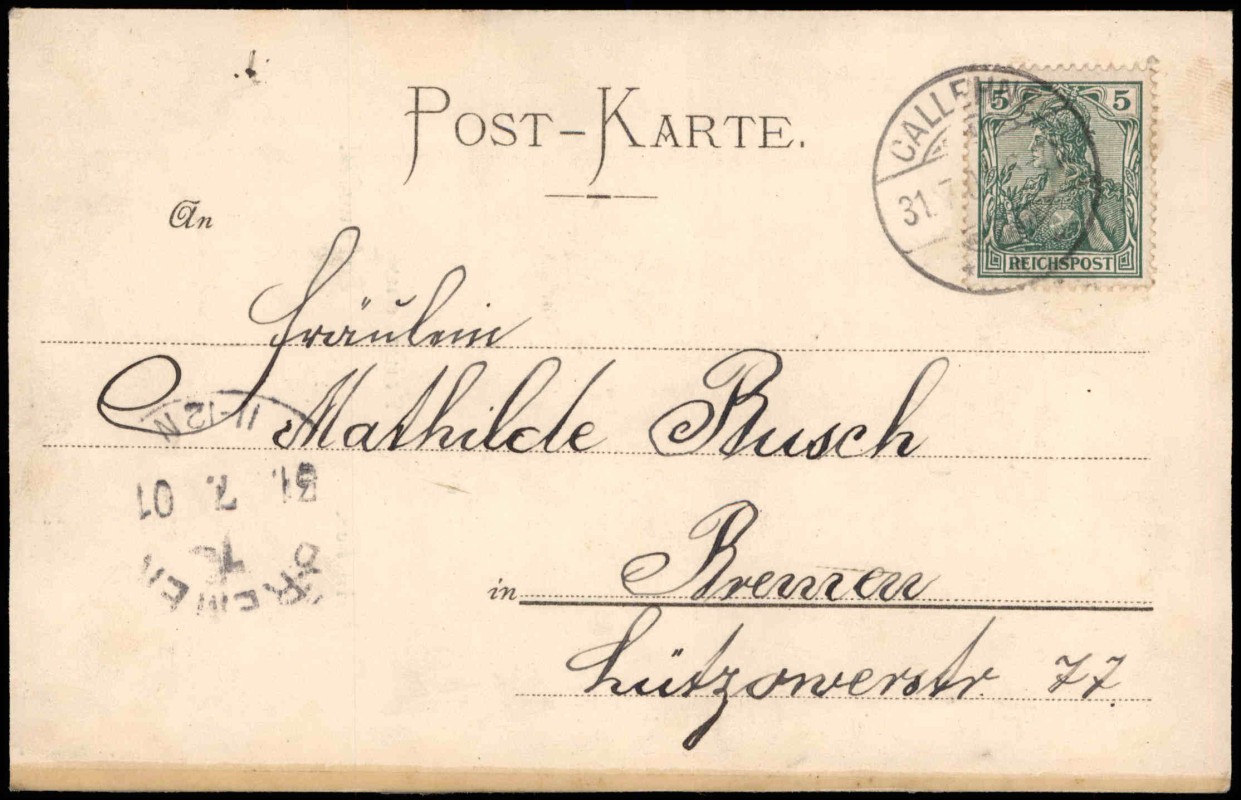 POST-KARTE.
CALLEHN
31. 7.
5 5
REICHSPOST
An
Fräulein
Mathilde Busch
in Bremen
Lützowerstr 77
11-12 N
31. 7. 01
BREMEN